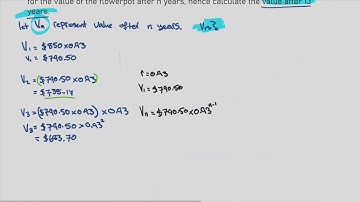 for the value of the flowerpot after n years, hence calculate the value after 13
years.
let Vn represent value after n years. Vn?
V1 = $850 x 0.93
V1 = $790.50
V2 = $790.50 x 0.93
= $735.17
r = 0.93
V1 = $790.50
V3 = ($790.50 x 0.93) x 0.93
Vn = $790.50 x 0.93^n-1
V3 = $790.50 x 0.93^2
= $683.70